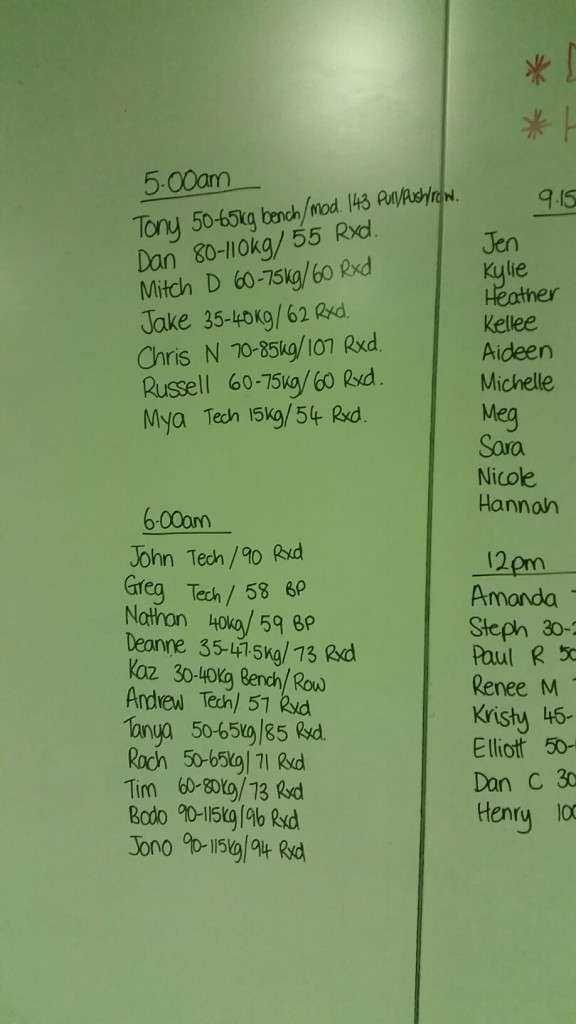 5.00am
Tony 50-65kg bench/mod. 143 Pull/Push/row.
Dan 80-110kg/55 Rxd.
Mitch D 60-75kg/60 Rxd
Jake 35-40kg/62 Rxd.
Chris N 70-85kg/107 Rxd.
Russell 60-75kg/60 Rxd.
Mya Tech 15kg/54 Rxd.
6.00am
John Tech/90 Rxd
Greg Tech/58 BP
Nathan 40kg/59 BP
Deanne 35-47.5kg/73 Rxd
Kaz 30-40kg Bench/Row
Andrew Tech/57 Rxd
Tanya 50-65kg/85 Rxd.
Rach 50-65kg/71 Rxd
Tim 60-80kg/73 Rxd
Bodo 90-115kg/96 Rxd
Jono 90-115kg/94 Rxd
*
* H
9.15
Jen
Kylie
Heather
Kellee
Aideen
Michelle
Meg
Sara
Nicole
Hannah
12pm
Amanda
Steph 30-
Paul R 50
Renee M
Kristy 45-
Elliott 50-
Dan C 30
Henry 100